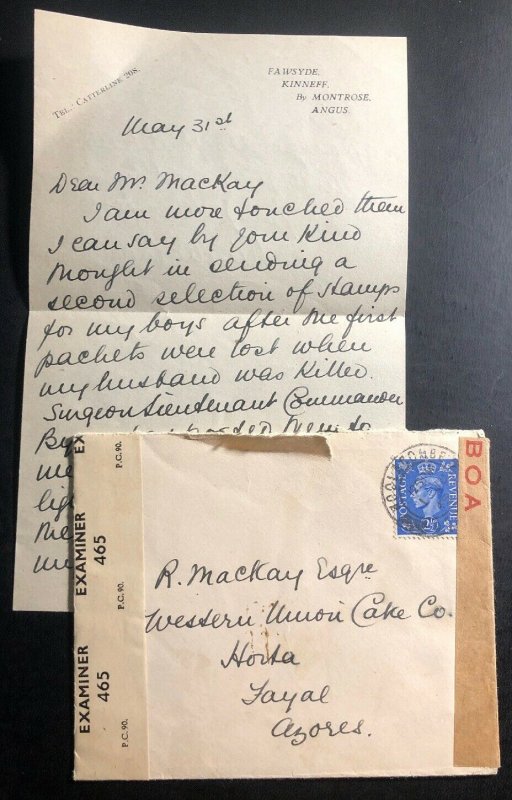 TEL: CATTERLINE 208.
FAWSYDE,
KINNEFF,
By MONTROSE,
ANGUS.
May 31st
Dear Mr. Mackay
I am more touched then
I can say by your kind
thought in sending a
second selection of stamps
for my boys after the first
packets were lost when
my husband was killed.
Surgeon Lieutenant Commander
them to
me
P.C.90.
EXAMINER
465
P.C.90.
EXAMINER
465
P.C.90.
POSTAGE
REVENUE
2½D
BOA
R. Mackay Esqre
Western Union Cake Co.
Horta
Fayal
Azores.